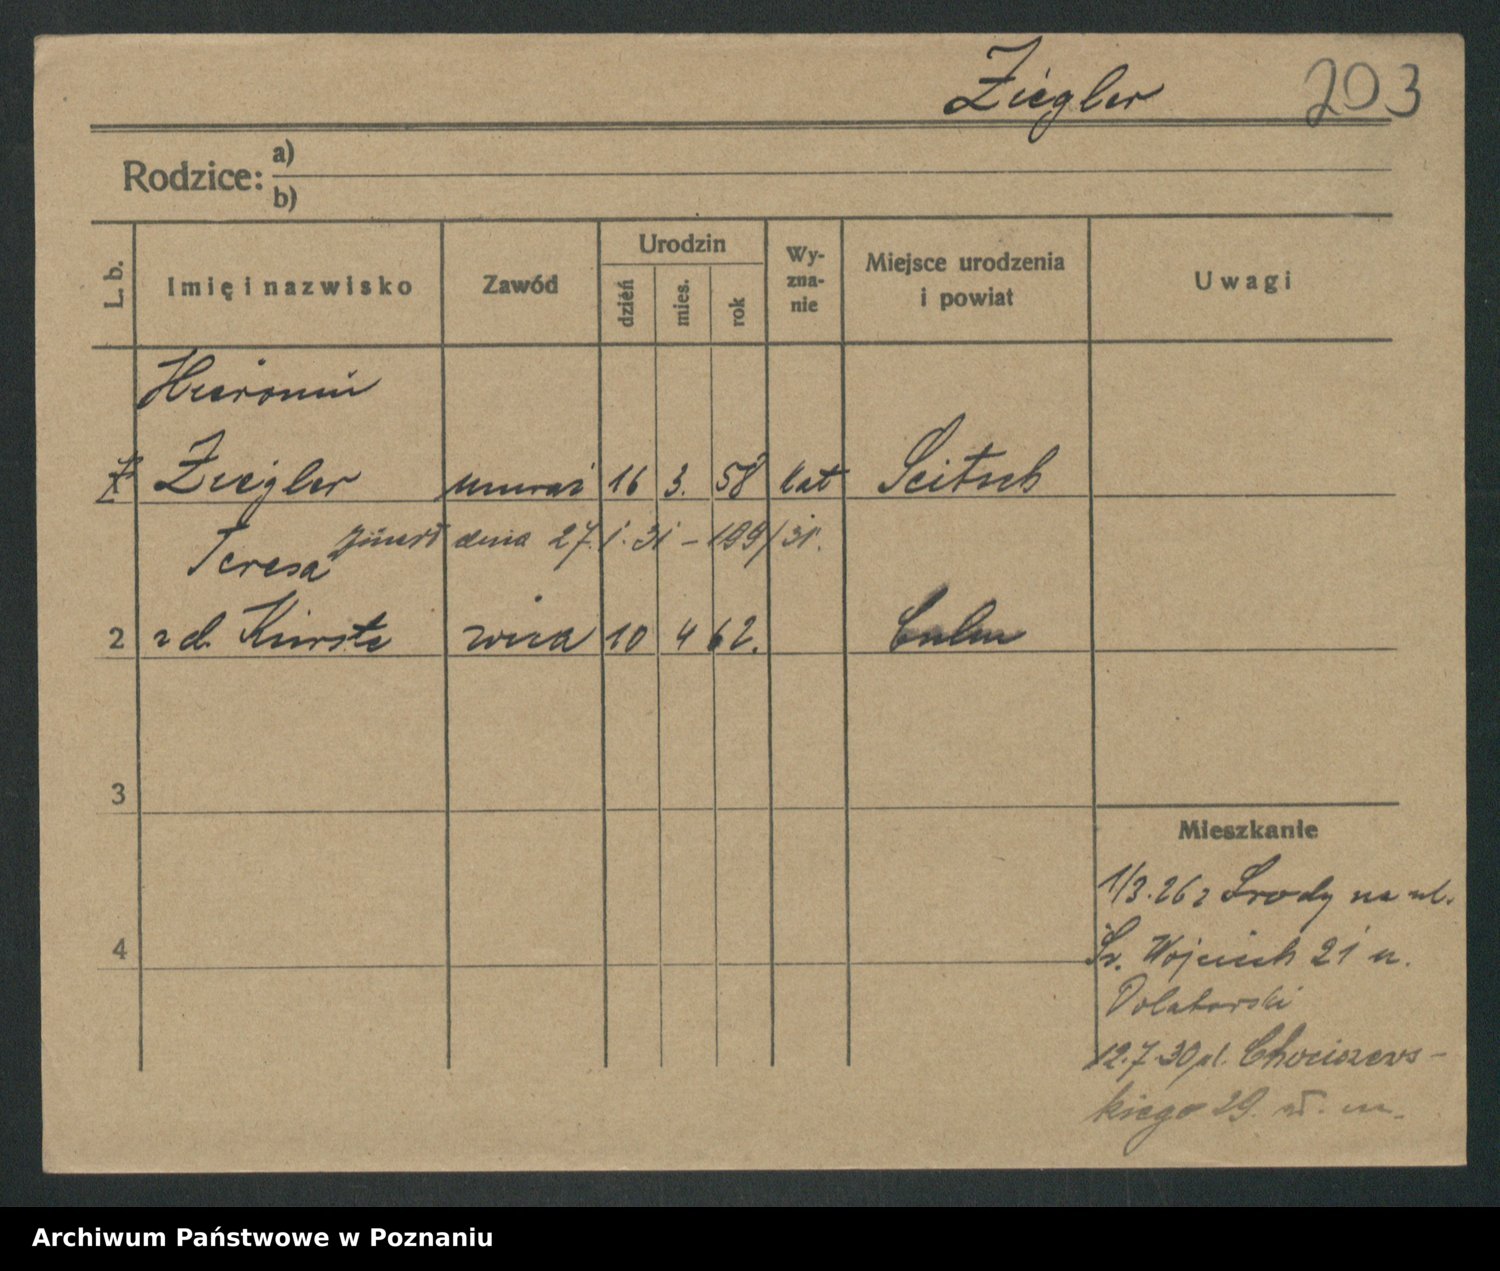 Ziegler 203
Rodzice: a)
b)
L. b. Imię i nazwisko Zawód Urodzin dzień mies. rok Wyznanie Miejsce urodzenia i powiat Uwagi
Hieronim
Ziegler murarz 16 3. 58 kat Seitsch
Teresa zmarł dnia 27. 1. 31 - 199/31.
2 z d. Kirste żona 10 4 62. Culm
3
Mieszkanie
1/3.26 z Środy na ul.
4 Św. Wojciech 21 u.
12.7.30 pl. Chociszews-
kiego 29. wł. m.
Archiwum Państwowe w Poznaniu